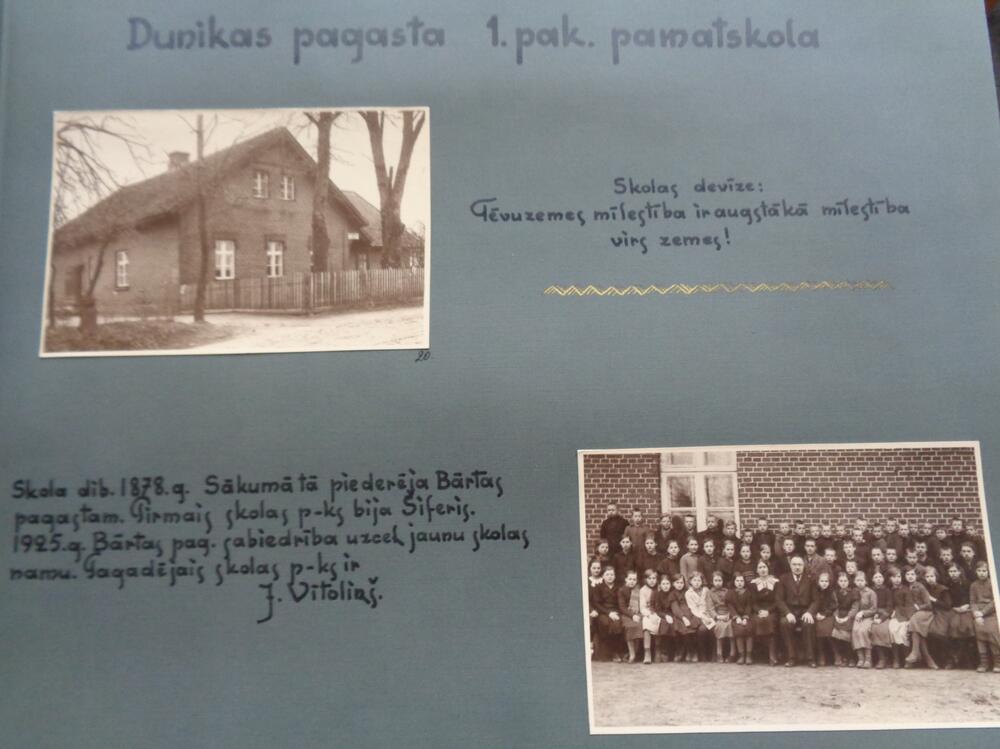 Dunikas pagasta 1. pak. pamatskola
Skolas devīze:
Tēvuzemes mīlestība ir augstākā mīlestība
virs zemes!
20.
Skola dib. 1878. g. Sākumā tā piederēja Bārtas
pagastam. Pirmais skolas p-ks bija Šiferis.
1925. g. Bārtas pag. sabiedrība uzcēl jaunu skolas
namu. Tagadējais skolas p-ks ir
J. Vītoliņš.